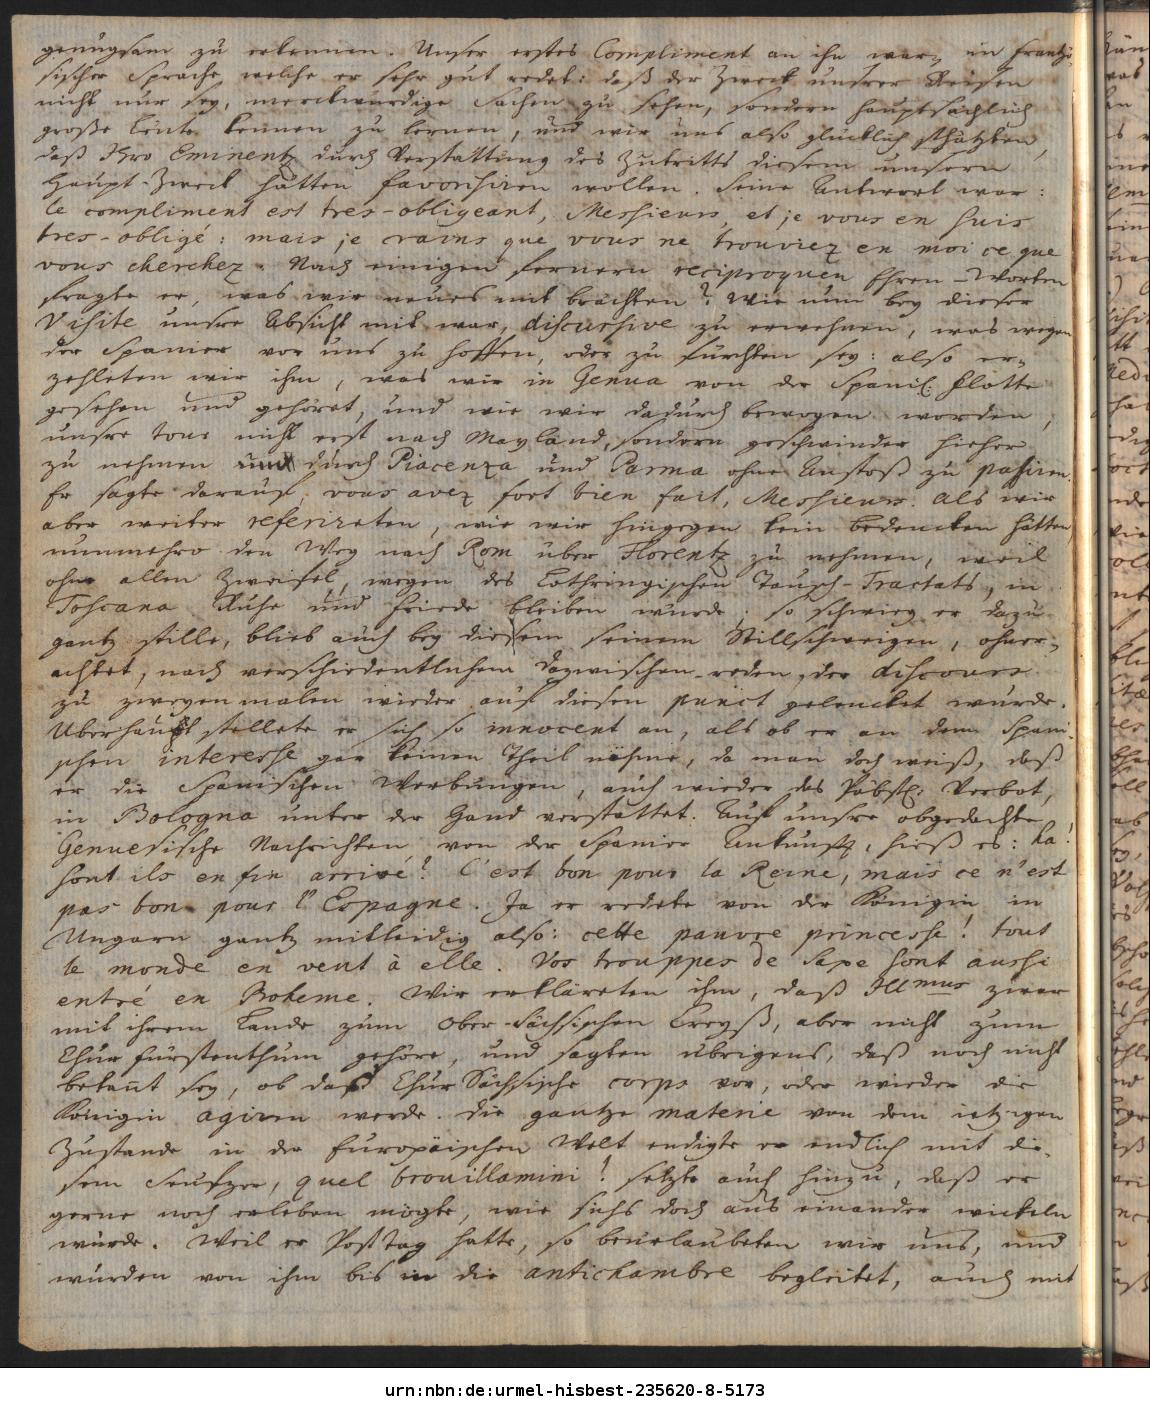 genugsam zu erkennen. Unser erstes Compliment an ihn war, in Frantzö-
sischer Sprache, welche er sehr gut redet: daß der Zweck unsrer Reisen
nicht nur sey, merckwürdige Sachen zu sehen, sondern hauptsächlich
große Leute kennen zu lernen, und wir uns also glücklich schätzten,
daß Ihro Eminentz durch Verstattung des Zutritts diesem unsern
Haupt-Zweck hätten favorisiren wollen. Seine Antwort war:
le compliment est tres-obligeant, Messieurs, et je vous en suis
tres-obligé: mais je crains que vous ne trouviez en moi ce que
vous cherchez. Nach einigen fernern reciproquen Ehren-Worten
fragte er, was wir neues mit brächten? Wie nun bey dieser
Visite unsre Absicht mit war, discursive zu erwehnen, was wegen
der Spanier vor uns zu hoffen, oder zu fürchten sey: also er-
zehleten wir ihm, was wir in Genua von der Spanis: Flotte
gesehen und gehöret, und wie wir dadurch bewogen worden,
unsre tour nicht erst nach Mayland, sondern geschwinder hieher
zu nehmen und durch Piacenza und Parma ohne Anstoß zu passiren.
Er sagte darauf: vous avez fort bien fait, Messieurs. Als wir
aber weiter referireten, wie wir hingegen kein Bedencken hätten,
nunmehro den Weg nach Rom über Florentz zu nehmen, weil
ohne allen Zweifel, wegen des Lothringischen Tausch-Tractats, in
Toscana Ruhe und Friede bleiben würde; so schwieg er dazu
gantz stille, blieb auch bey diesem seinem Stillschweigen, ohner-
achtet, nach verschiedentlichem dazwischen-reden, der discours
zu zweyenmalen wieder auf diesen punct gelencket wurde.
Uberhaupt stellete er sich so innocent an, als ob er an dem Spani-
schen interesse gar keinen Theil nähme, da man doch weiß, daß
er die Spanischen Werbungen, auch wieder das Päbstl: Verbot,
in Bologna unter der Hand verstattet. Auf unsre obgedachte
Genuesische Nachrichten, von der Spanier Ankunfft, hieß es: ha!
sont ils enfin arrivé? C'est bon pour la Reine, mais ce n'est
pas bon pour l'Espagne. Ja er redete von der Königin in
Ungarn gantz mitleidig also: cette pauvre princesse! tout
le monde en veut à elle. Vos trouppes de Saxe sont aussi
entré en Boheme. Wir erkläreten ihm, daß Illmus zwar
mit ihrem Lande zum Ober-Sächsischen Creyß, aber nicht zum
Churfürstenthum gehöre, und sagten übrigens, daß noch nicht
bekant sey, ob daß ChurSächsische corps vor, oder wieder die
Königin agiren werde. Die gantze materie von dem ietzigen
Zustande in der Europäischen Welt endigte er endlich mit die-
sem Seufzer, quel brouillamini! setzte auch hinzu, daß er
gerne noch erleben mögte, wie sichs doch aus einander wickeln
würde. Weil er PostTag hatte, so beurlaubeten wir uns, und
wurden von ihm bis in die antichambre begleitet, auch mit
urn:nbn:de:urmel-hisbest-235620-8-5173